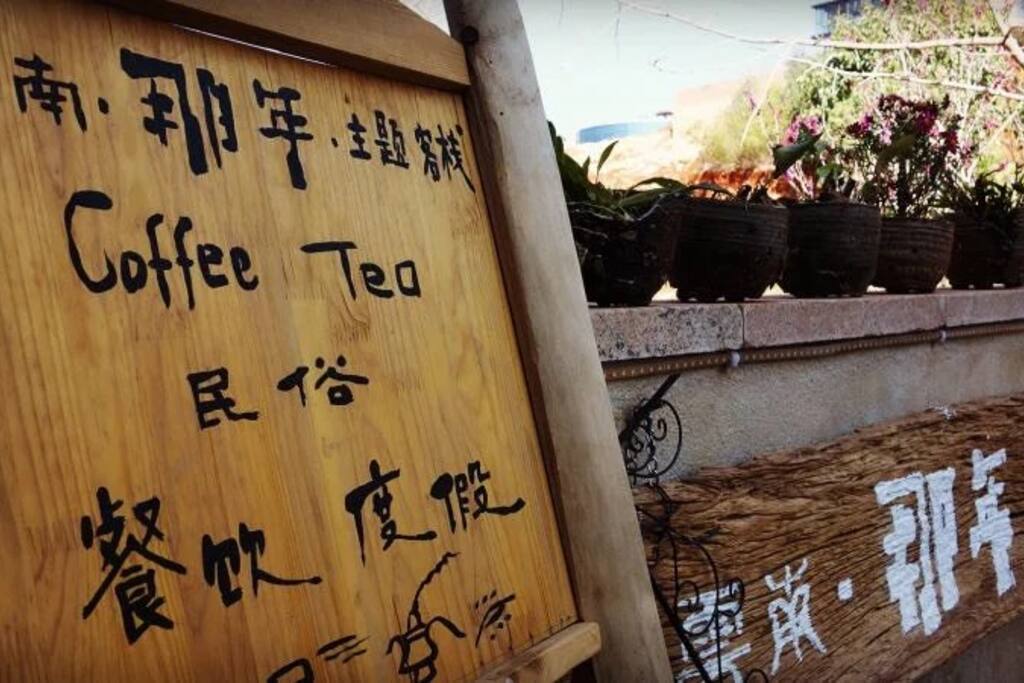 南·那年·主题客栈
Coffee Tea
民俗
餐饮 度假
云南·那年